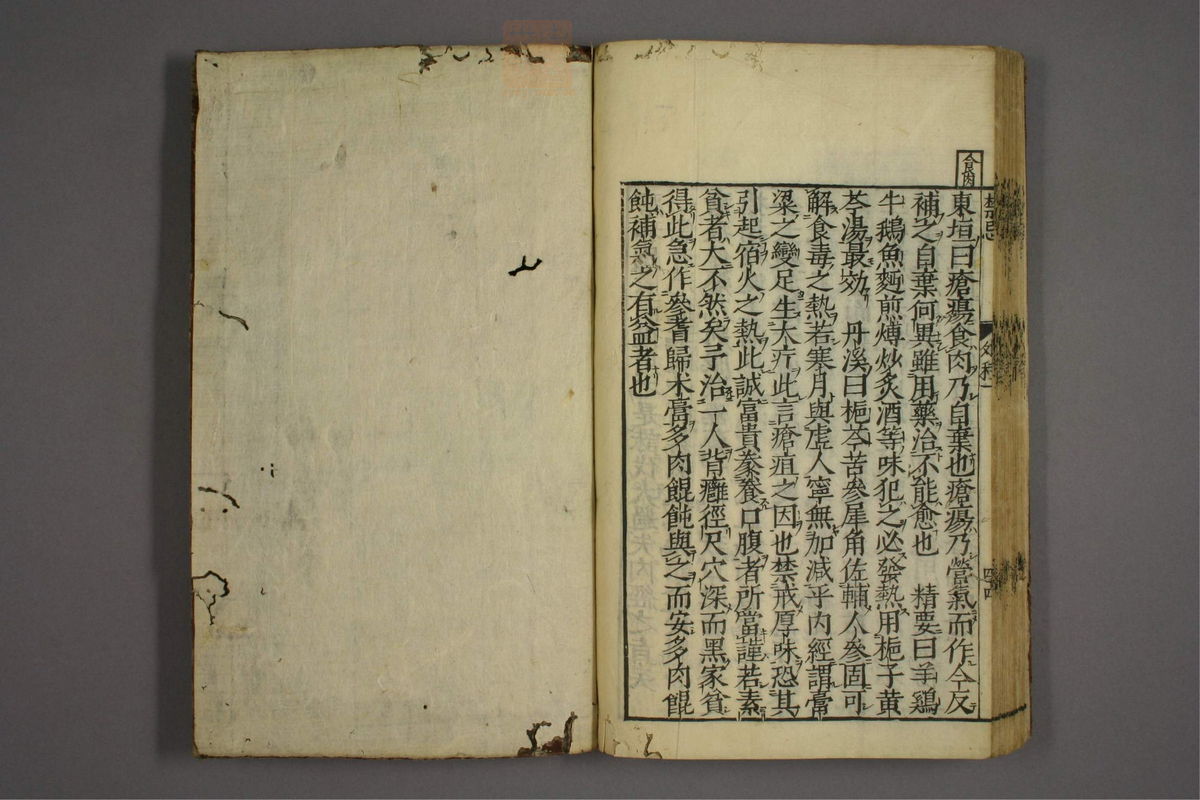 禁忌
食肉
東垣曰瘡瘍食肉乃自棄也瘡瘍乃營氣而作今反
補之自棄何異雖用藥治不能愈也 精要曰羊鷄
牛鵝魚麪煎煿炒炙酒等味犯之必發熱用梔子黃
芩湯最効 丹溪曰梔芩苦參犀角佐輔人參固可
解食毒之熱若寒月與虛人寧無加減乎內經謂膏
粱之變足生大疔此言瘡疽之因也禁戒厚味恐其
引起宿火之熱此誠富貴豢養口腹者所當謹若素
貧者大不然矣予治一人背癰徑尺穴深而黑家貧
得此急作參耆歸朮膏多肉餛飩與之而安多肉餛
飩補氣之有益者也